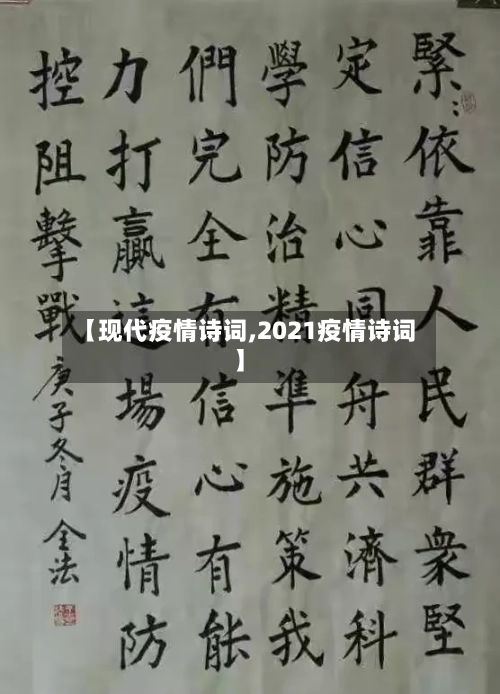 緊：依靠人民群衆堅
定信心同舟共濟科
學防治精準施策我
們完全有信心有能
力打贏這場疫情防
控阻擊戰 庚子冬月 全法
【现代疫情诗词,2021疫情诗词
】